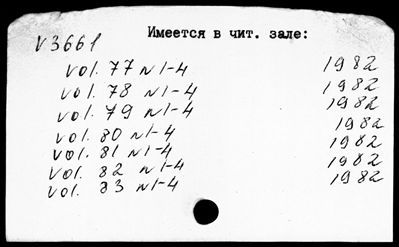 Имеется в чит. зале:
V3661
vol. 77 N1-4 1982
vol. 78 N1-4 1982
vol. 79 N1-4 1982
vol. 80 N1-4 1982
vol. 81 N1-4 1982
vol. 82 N1-4 1982
vol. 83 N1-4 1982